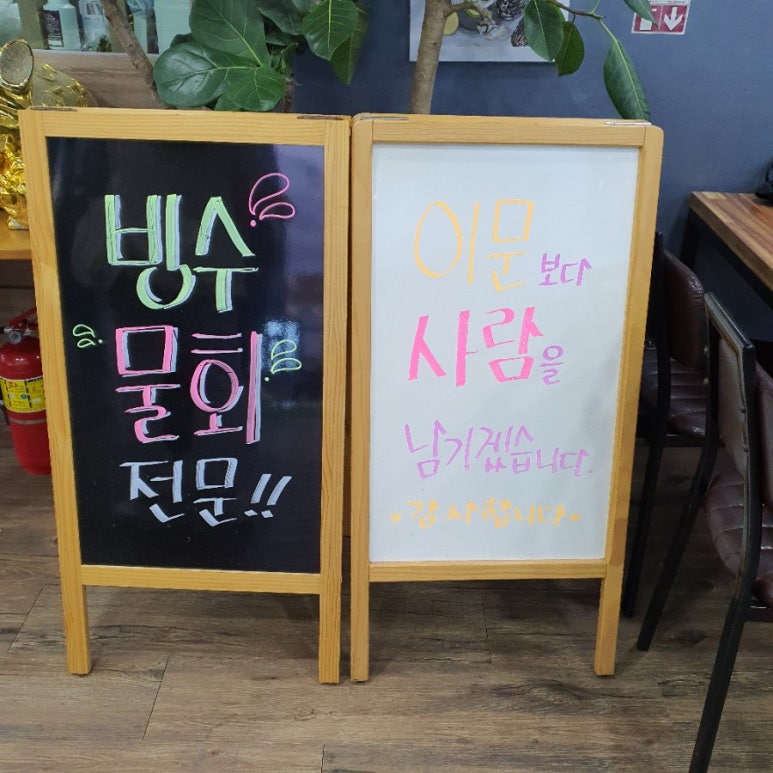 빙수
물회
전문!!
이문보다
사람을
남기겠습니다.
감사합니다